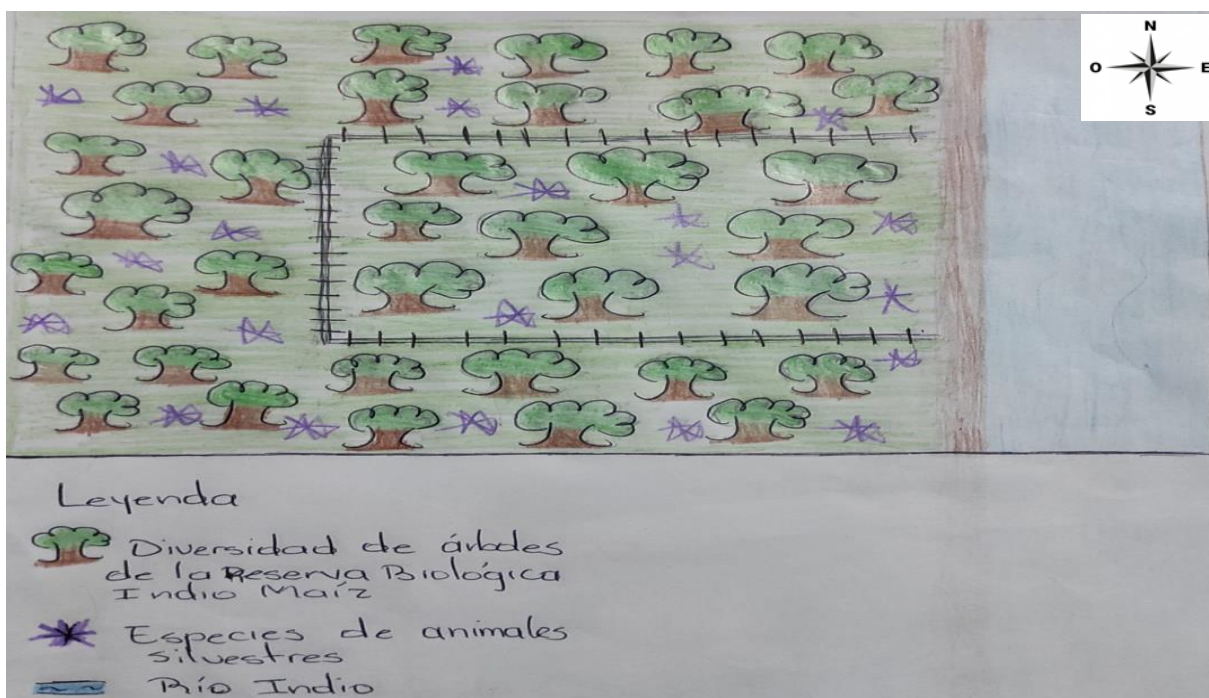 N
O E
S
Leyenda
Diversidad de árboles
de la Reserva Biológica
Indio Maíz
Especies de animales
silvestres
Río Indio